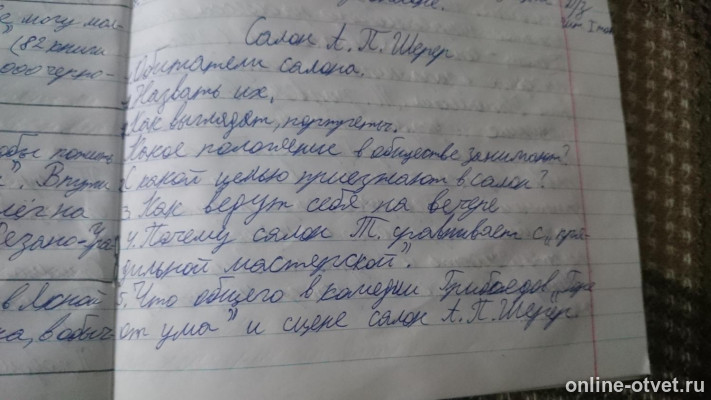 е, могу мол-
(82 книги
000 черно-
обы понять
". В пути
лёг на
Рязано-Ура
в Ясной
на, в обыч
Салон А. П. Шерер
Обитатели салона.
Назвать их.
Как выглядят, портреты.
Какое положение в обществе занимают?
С какой целью приезжают в салон?
3. Как ведут себя на вечере
4. Почему салон Т. сравнивает с „пря-
дильной мастерской".
5. Что общего в комедии Грибоедов „Горе
от ума" и сцене салон А. П. Шерер.
д/з
I том
online-otvet.ru